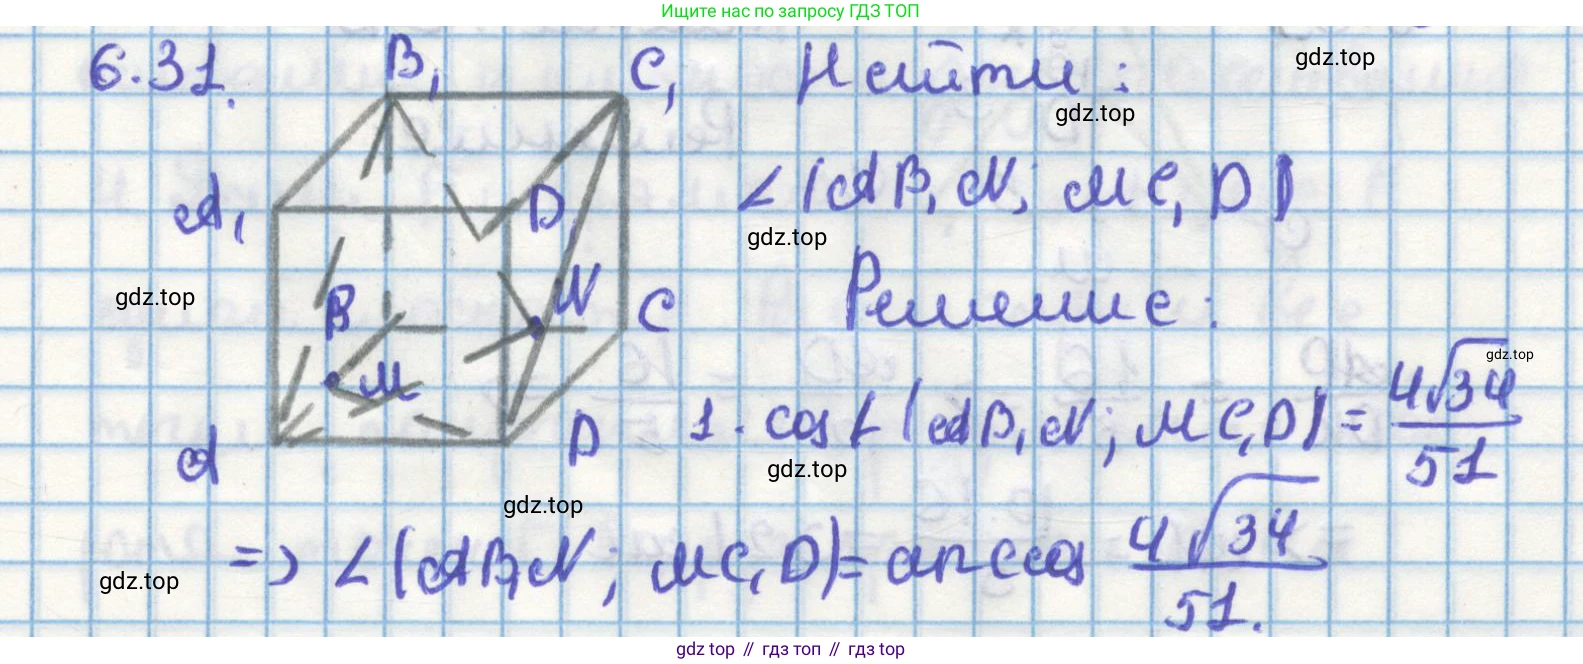 Ищите нас по запросу ГДЗ ТОП
6.31.
B₁
C₁
Найти:
gdz.top
gdz.top
A₁
D₁
∠(AB₁N; MC₁D)
gdz.top
gdz.top
B
N
C
Решение:
M
gdz.top
A
D
1. cos∠(AB₁N; MC₁D) = 4√34/51
gdz.top
gdz.top
gdz.top
=> ∠(AB₁N; MC₁D) = arccos 4√34/51.
gdz.top // гдз топ // гдз top